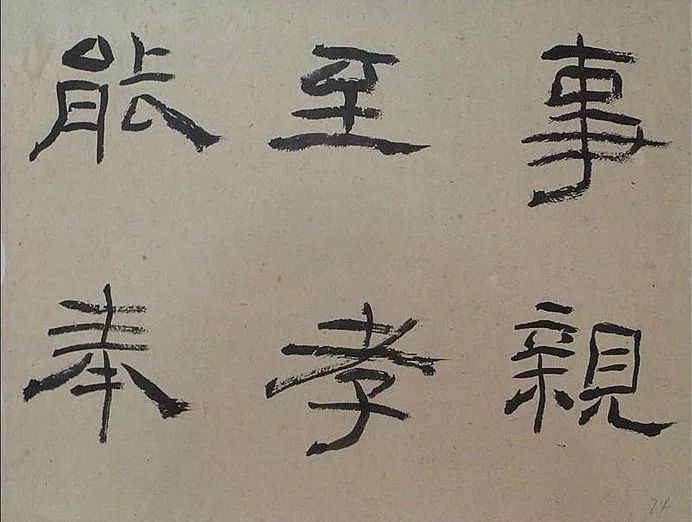 事親
至孝
能奉